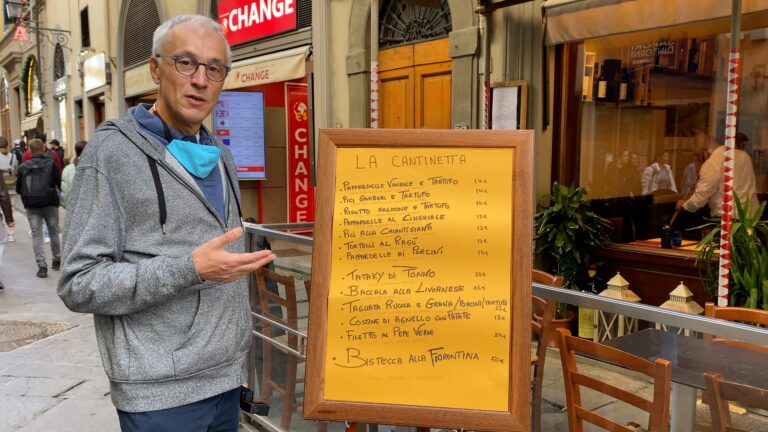 CHANGE
CHANGE
CHANGE
LA CANTINETTA
• PAPPARDELLE VONGOLE E TARTUFO 14€
• PICI GAMBERI E TARTUFO 14€
• RISOTTO SALMONE E TARTUFO 14€
• PAPPARDELLE AL CINGHIALE 12€
• PICI ALLA CHIANTIGIANA 12€
• TORTELLI AL RAGÚ 12€
• PAPPARDELLE AI PORCINI 14€
• TATAKY DI TONNO 22€
• BACCALA ALLA LIVORNESE
• TAGLIATA RUCOLA E GRANA/PORCINI/TARTUFO 22€
• COSTINE DI AGNELLO CON PATATE 18€
• FILETTO AL PEPE VERDE 24€
• BISTECCA ALLA FIORENTINA 50€